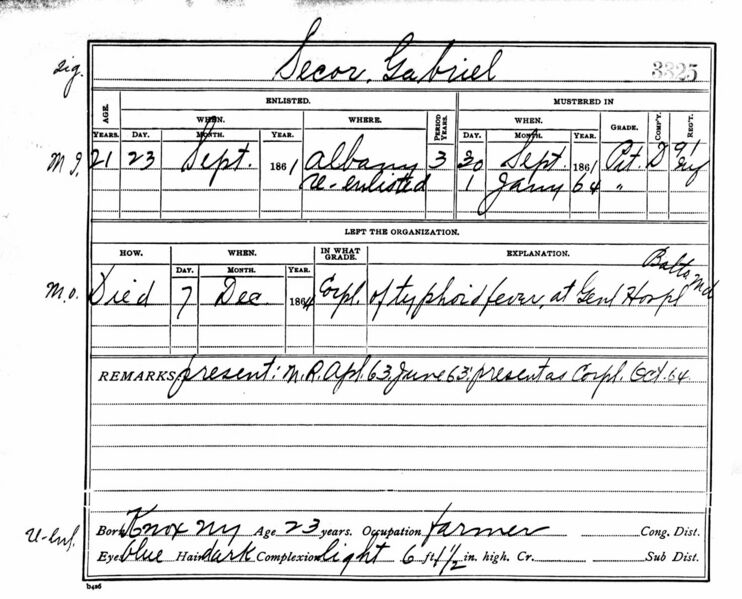 Sig. Secor, Gabriel 3325
ENLISTED. MUSTERED IN
AGE. WHEN. WHERE. PERIOD YEARS. WHEN. GRADE. COMP'Y. REG'T.
YEARS. DAY. MONTH. YEAR. DAY. MONTH. YEAR.
M I. 21 23 Sept. 1861 Albany 3 30 Sept. 1861 Pvt. D 91 NY
re-enlisted 1 Jany 64 "
LEFT THE ORGANIZATION.
HOW. WHEN. IN WHAT GRADE. EXPLANATION.
DAY. MONTH. YEAR.
M.O. Died 7 Dec. 1864 Corpl. of typhoid fever, at Genl Hospl Balto Md
REMARKS: present: M.R. Apl. 63. June 63: present as Corpl. Oct. 64.
Born Knox NY Age 23 years. Occupation farmer Cong. Dist.
Eyes blue Hair dark Complexion light 6 ft 1½ in. high. Cr. Sub Dist.
b426